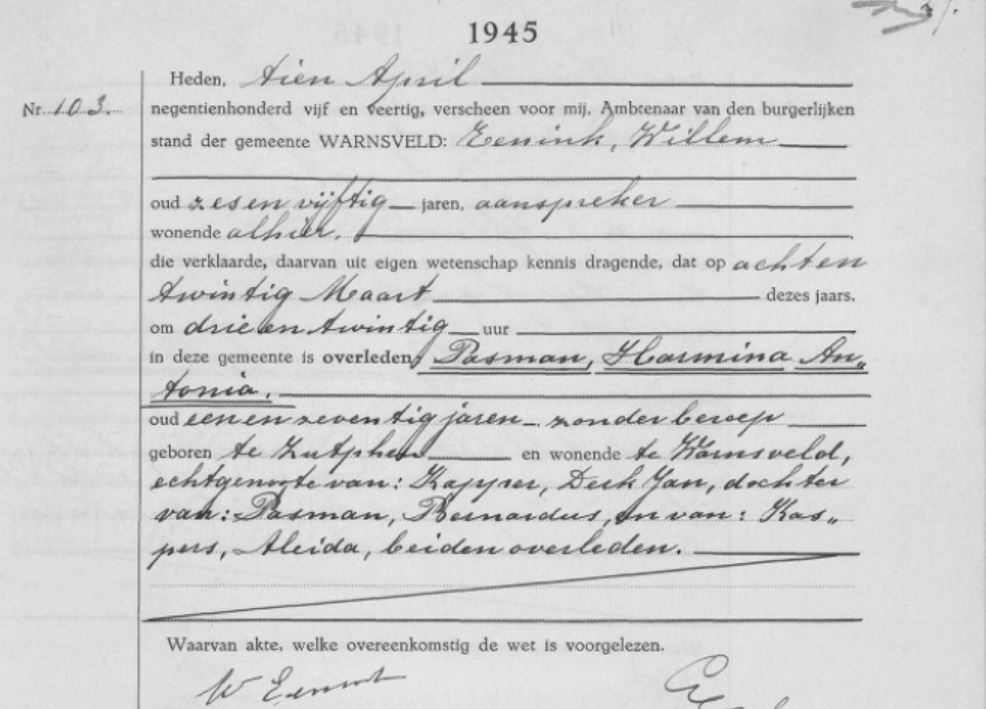 1945
Heden, tien April
Nr. 103. negentienhonderd vijf en veertig, verscheen voor mij, Ambtenaar van den burgerlijken
stand der gemeente WARNSVELD: Eenink, Willem
oud zesenvijftig jaren, aanspreker
wonende alhier.
die verklaarde, daarvan uit eigen wetenschap kennis dragende, dat op achten
twintig Maart dezes jaars,
om drieentwintig uur
in deze gemeente is overleden, Pasman, Harmina An„
tonia,
oud eenenzeventig jaren zonder beroep
geboren te Zutphen en wonende te Warnsveld,
echtgenoote van: Kapper, Derk Jan, dochter
van: Pasman, Bernardus, en van: Kas„
pers, Aleida, beiden overleden.
Waarvan akte, welke overeenkomstig de wet is voorgelezen.
W Eenink